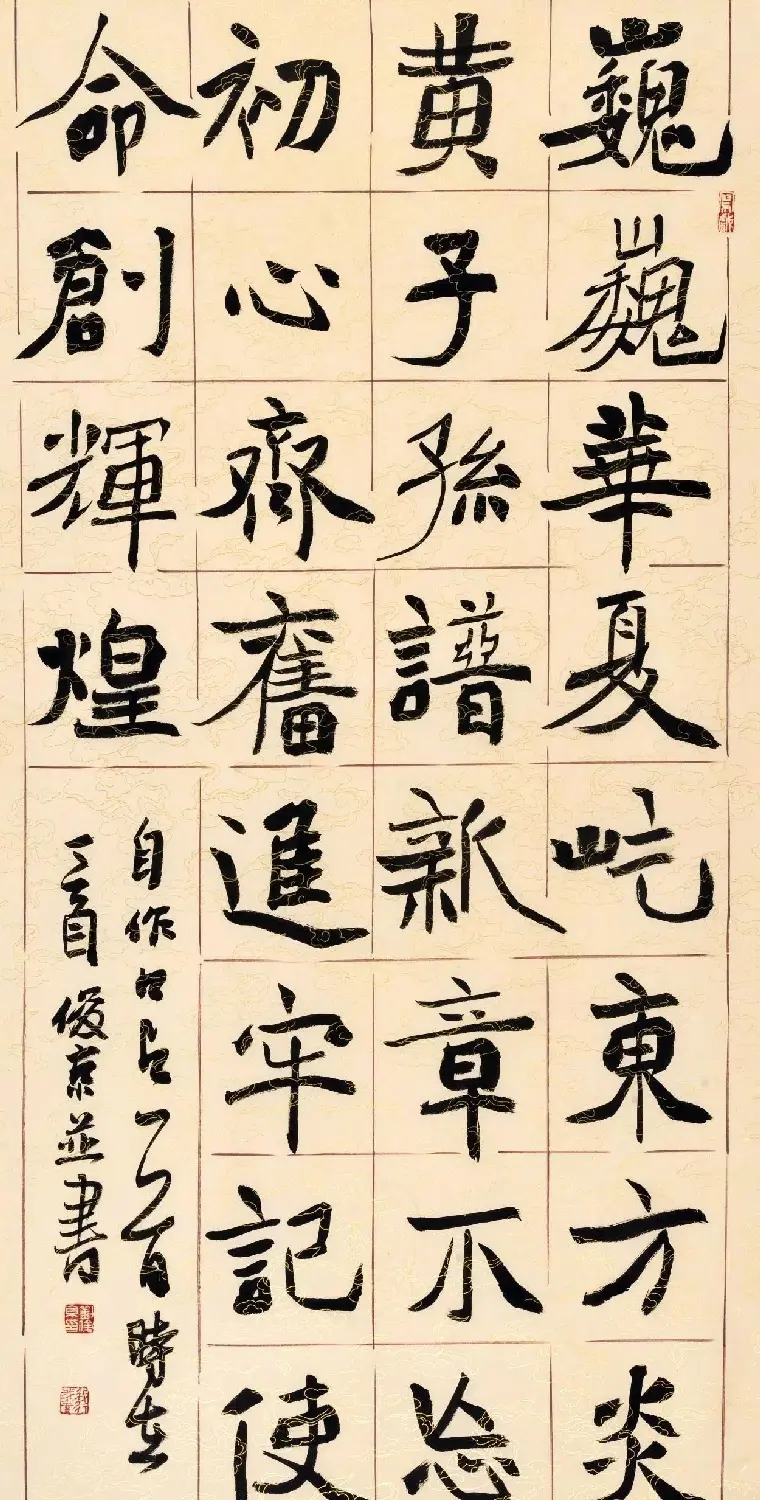 巍巍華夏屹東方炎
黃子孫譜新章不忘
初心齊奮進牢記使
命創輝煌
自作口占一首時在
俊京並書